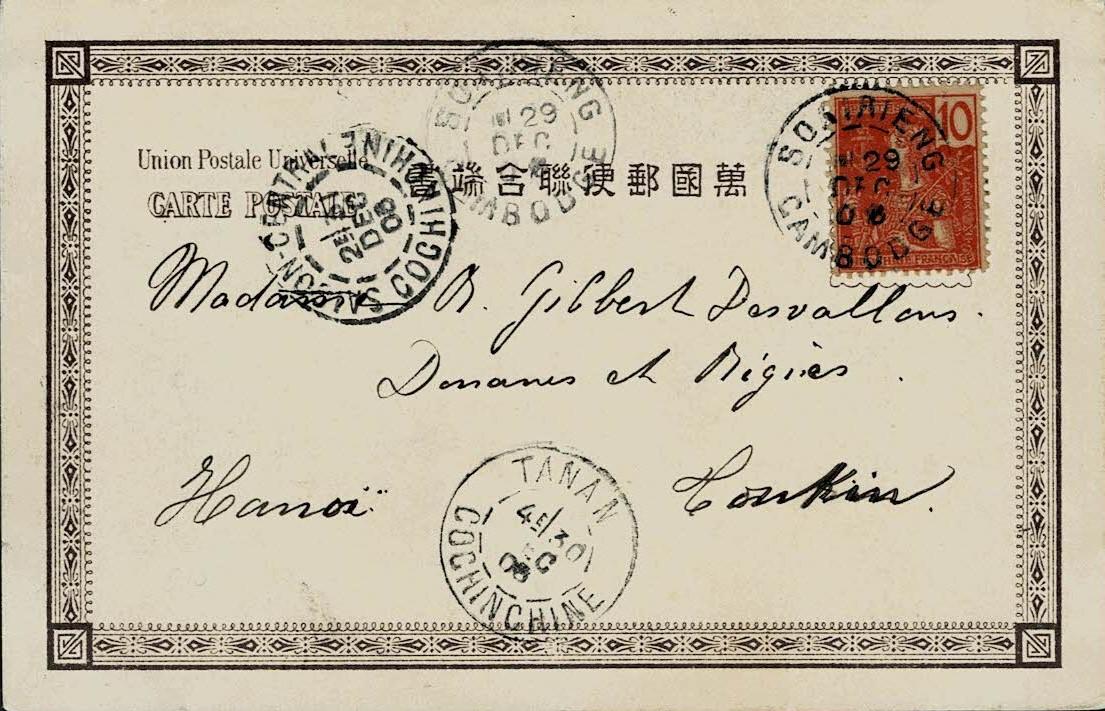 Union Postale Universelle
CARTE POSTALE
萬國郵便聯合端書
SOAIRIENG
29
DEC
CAMBODGE
SOAIRIENG
29
DEC
06
CAMBODGE
10
FRANÇAISE
SAIGON-CENTRAL
2E
DEC
COCHINCHINE
Madame R. Gilbert Desvallons.
Douanes et Régies.
Hanoï. Tonkin.
TANAN
4E 30
DEC
COCHINCHINE